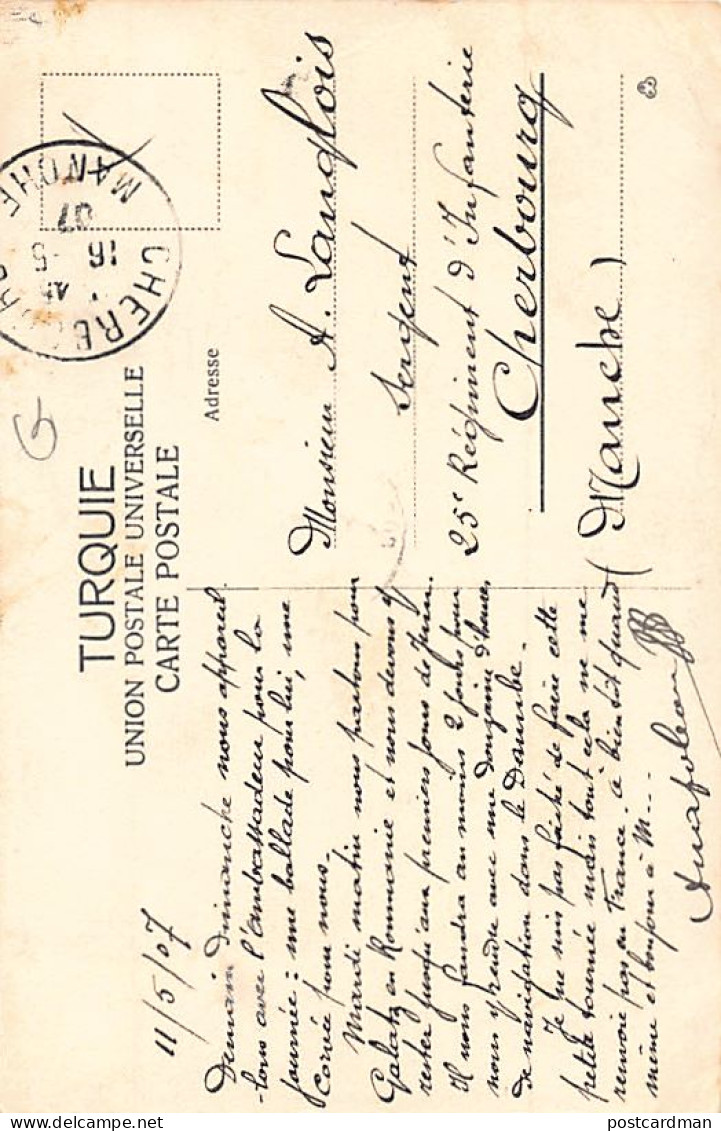 TURQUIE
UNION POSTALE UNIVERSELLE
CARTE POSTALE
Adresse
CHERBOURG
16 -5
07
MANCHE
11/5/07
Demain dimanche nous appareil-
-lons avec l'ambassadeur pour la
journée : une ballade pour lui, une
corvée pour nous.
Mardi matin nous partons pour
Galatz en Roumanie et nous devons y
rester jusqu'aux premiers jours de Juin.
Il nous faudra au moins 2 jours pour
nous y rendre avec une douzaine d'heures
de navigation dans le Danube.
Je ne suis pas fâché de faire cette
petite tournée mais tout cela ne me
renvoie pas en France. à bientôt quand
même et bonjour à M...
Monsieur A. Langlois
Sergent
25e Régiment d'Infanterie
Cherbourg
(Manche)
postcardman